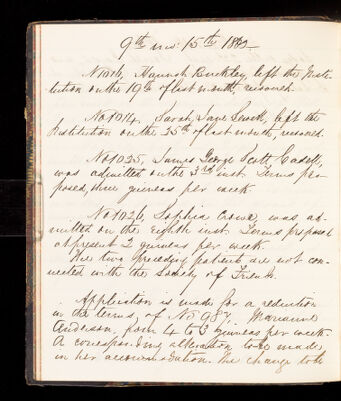 9th mo: 15th
No 1016, Hannah Binkley, left the Insti-
tution on the 19th of last month, recovered.
No 1014, Sarah Jane Smith, left the
Institution on the 25th of last month, recovered.
No 1025, James George Scott Cadell,
was admitted on the 3rd inst. Terms pro-
posed, three guineas per week
No 1026, Sophia Crowe, was ad-
mitted on the eighth inst. Terms proposed
at present 2 guineas per week
The two preceding patients are not con-
nected with the Society of Friends.
Application is made for a reduction
in the terms, of No 987, Marianne
Anderson, from 4 to 3 guineas per week.
A corresponding alteration to be made
in her accommodation. The change to be